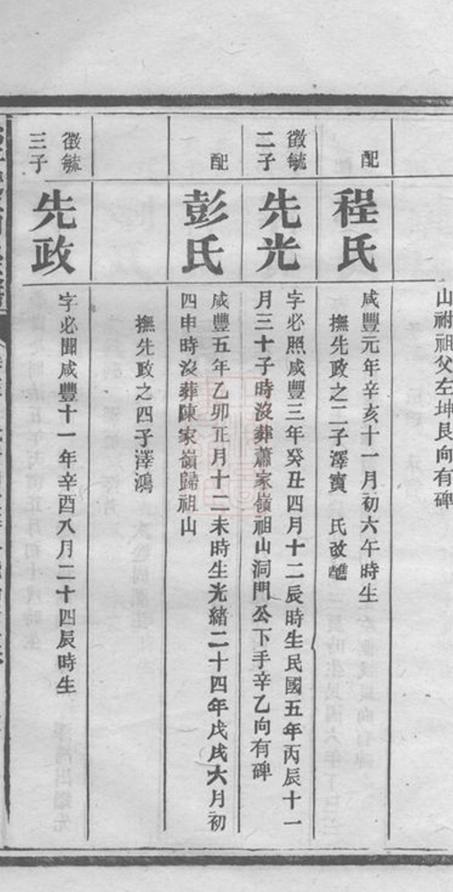 山祔祖父左坤艮向有碑
配
程氏
咸豐元年辛亥十一月初六午時生
撫先政之二子澤賓 氏改醮
徵毓
二子
先光
字必照咸豐三年癸丑四月十二辰時生民國五年丙辰十一
月三十子時沒葬蕭家嶺祖山洞門公下手辛乙向有碑
配
彭氏
咸豐五年乙卯正月十二未時生光緒二十四年戊戌六月初
四申時沒葬陳家嶺歸祖山
撫先政之四子澤鴻
徵毓
三子
先政
字必聞咸豐十一年辛酉八月二十四辰時生